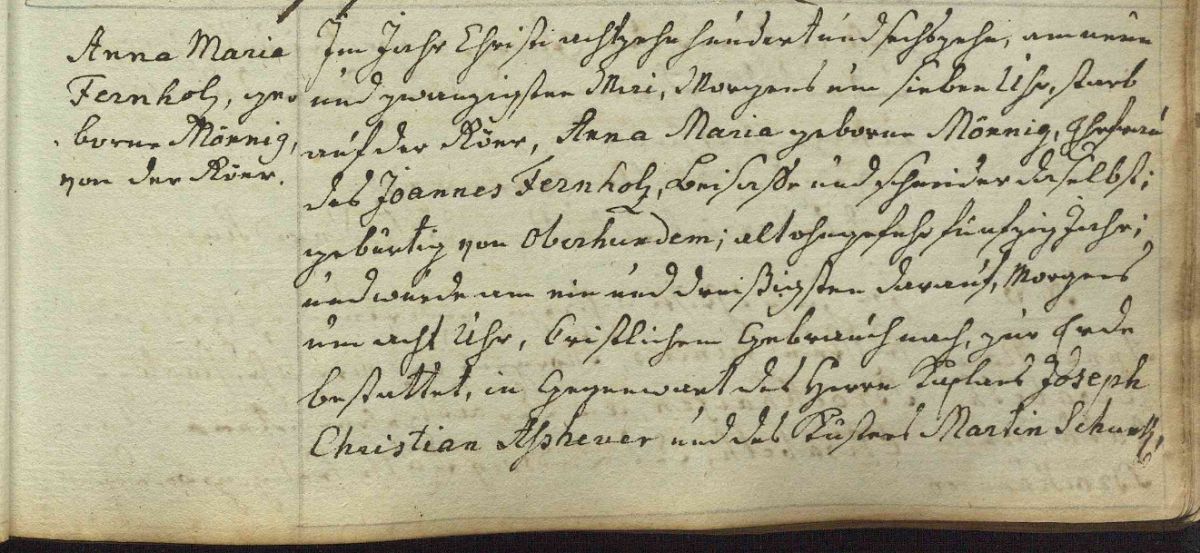 Anna Maria
Fernholz, ge-
borne Mönnig,
von der Röer.
Im Jahr Christi achtzehn hundert und sechszehn, am neun
und zwanzigsten Mai, Morgens um sieben Uhr, starb
auf der Röer, Anna Maria geborne Mönnig, Ehefrau
des Joannes Fernholz, Beisasse und Schneider daselbst;
gebürtig von Oberhundem; alt ohngefehr fünfzig Jahr;
und wurde am ein und dreißigsten darauf, Morgens
um acht Uhr, Cristlichem Gebrauch nach, zur Erde
bestattet, in Gegenwart des Herrn Kaplans Joseph
Christian Ashever und des Küsters Martin